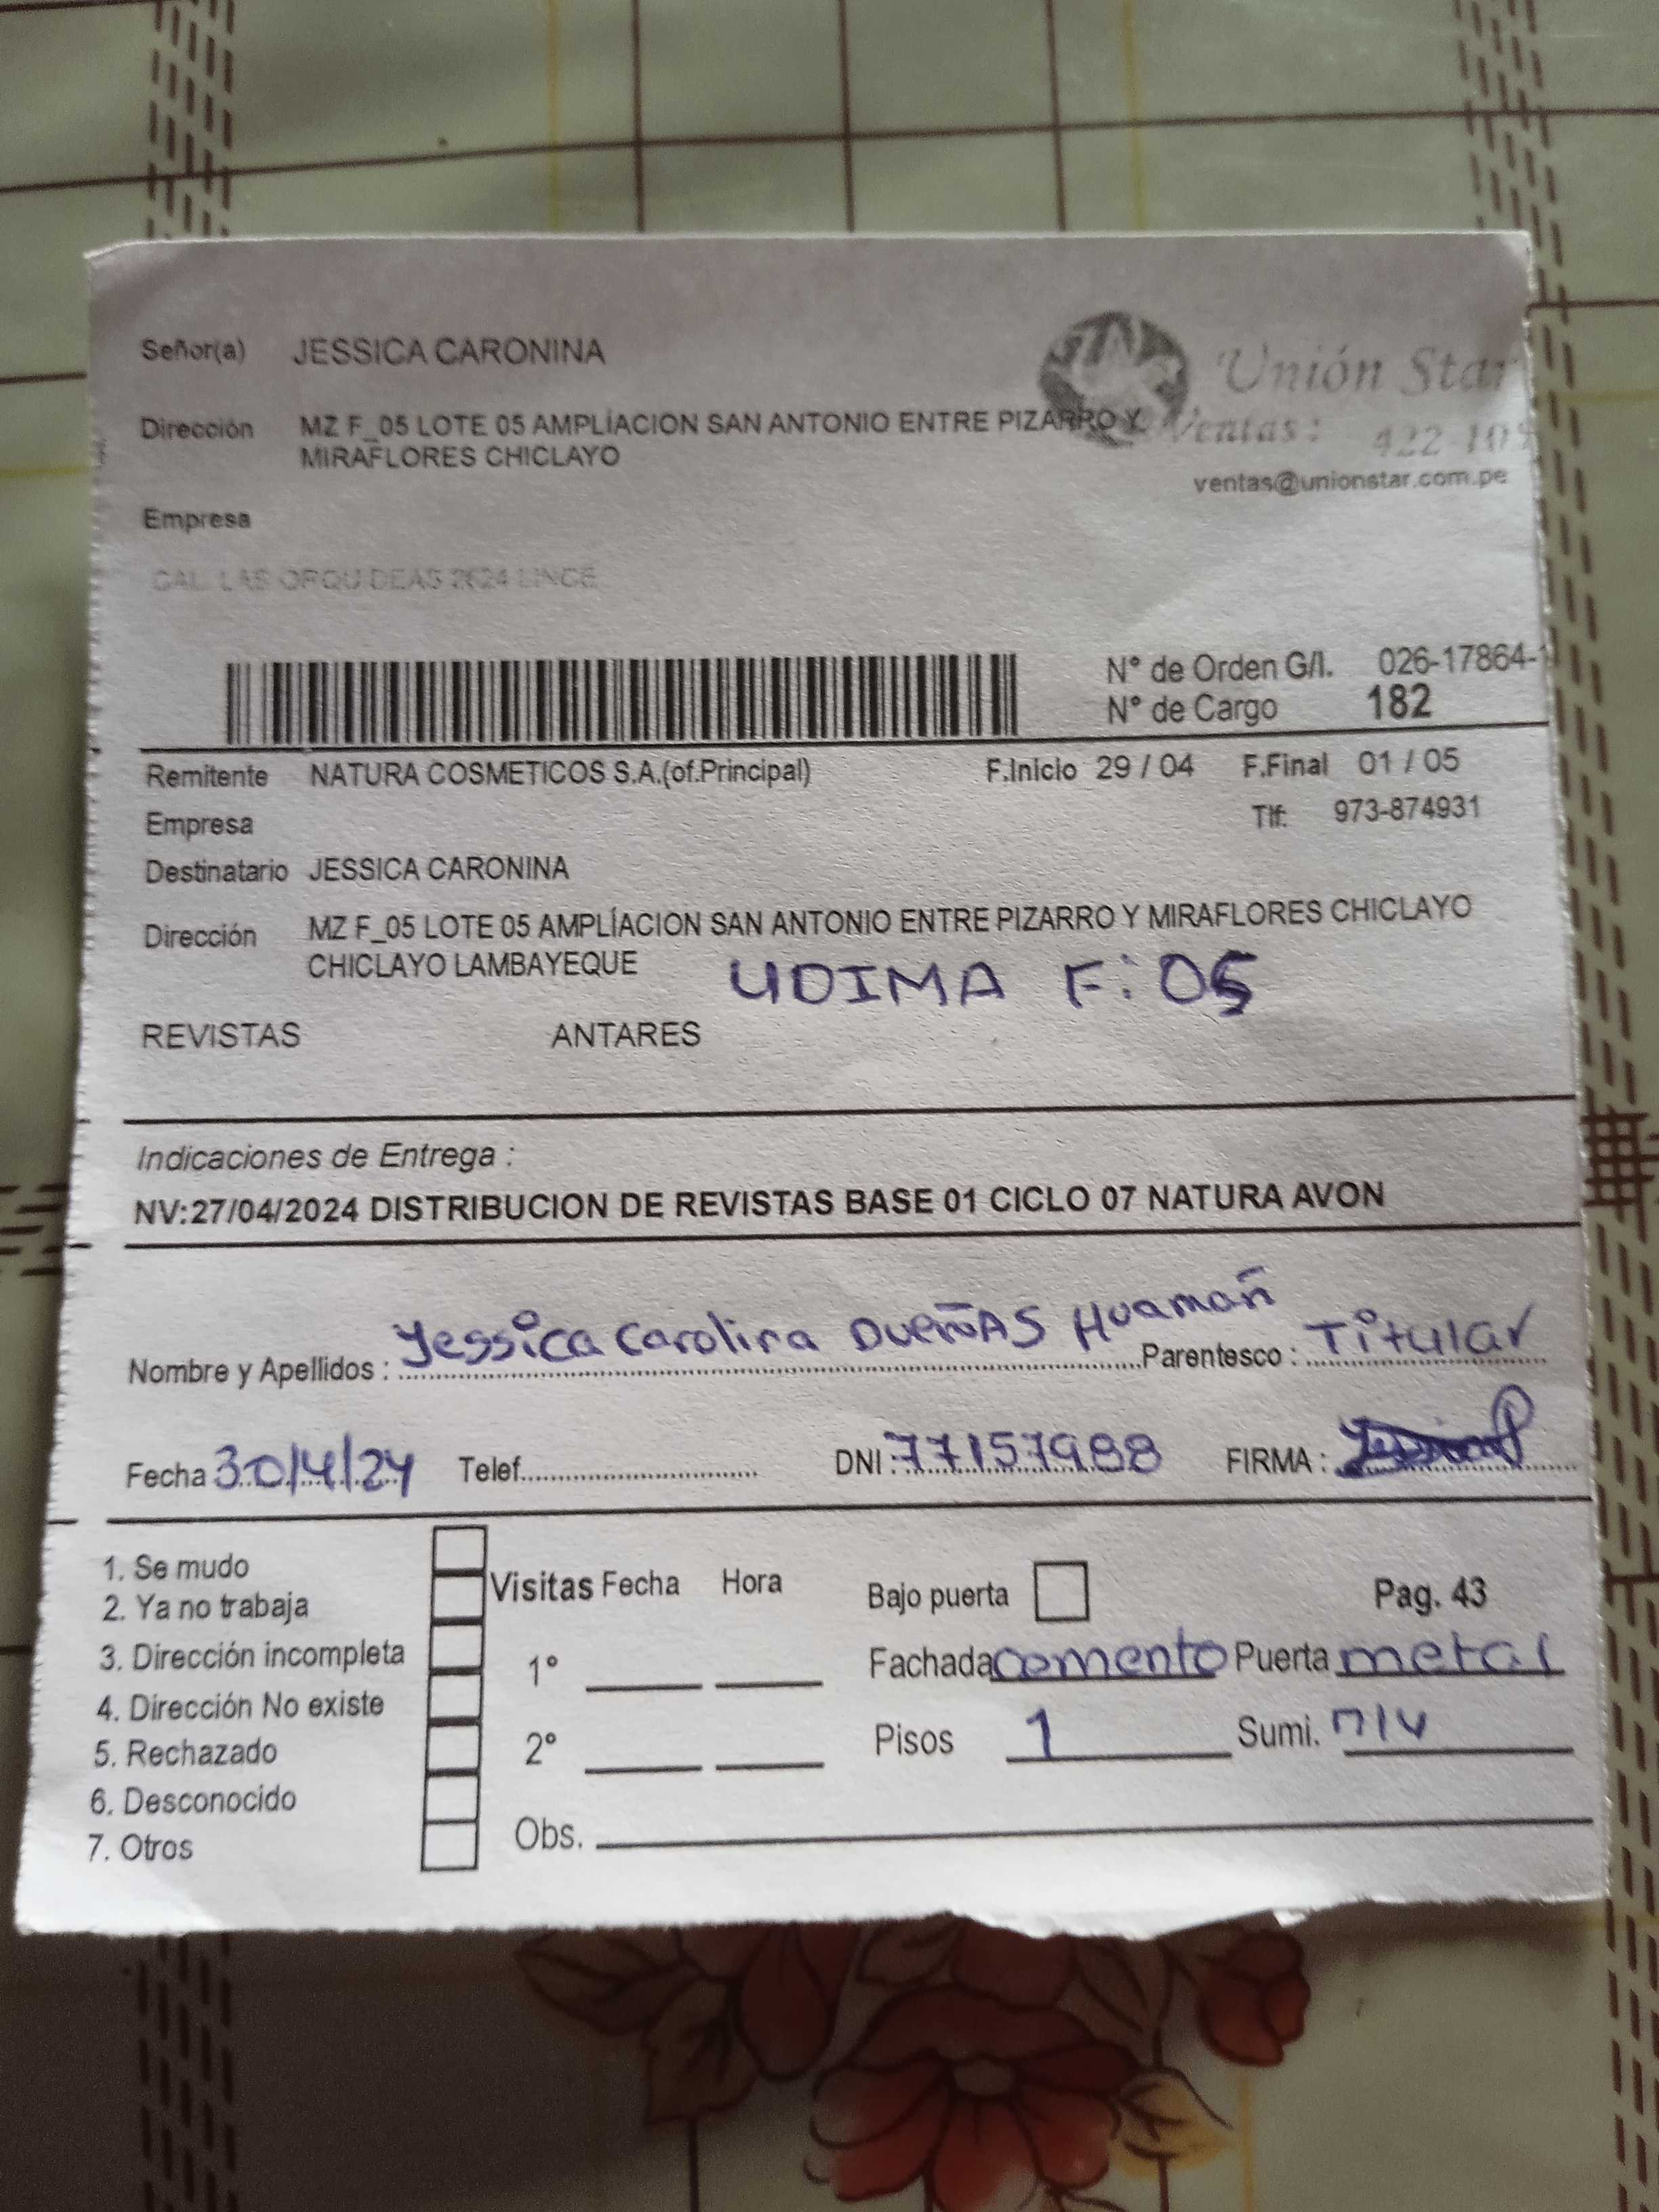 Señor(a) JESSICA CARONINA
Unión Star
Dirección MZ F_05 LOTE 05 AMPLÍACION SAN ANTONIO ENTRE PIZARRO Y
MIRAFLORES CHICLAYO
Ventas: 422-105
ventas@unionstar.com.pe
Empresa
CAL. LAS ORQUIDEAS 2624 LINCE
N° de Orden G/I. 026-17864-1
N° de Cargo 182
Remitente NATURA COSMETICOS S.A.(of.Principal) F.Inicio 29 / 04 F.Final 01 / 05
Empresa Tlf: 973-874931
Destinatario JESSICA CARONINA
Dirección MZ F_05 LOTE 05 AMPLÍACION SAN ANTONIO ENTRE PIZARRO Y MIRAFLORES CHICLAYO
CHICLAYO LAMBAYEQUE UDIMA F: 05
REVISTAS ANTARES
Indicaciones de Entrega :
NV:27/04/2024 DISTRIBUCION DE REVISTAS BASE 01 CICLO 07 NATURA AVON
Nombre y Apellidos : Yessica Carolina DUEÑAS Huamañ Parentesco : Titular
Fecha 30/4/24 Telef. DNI : 77157988 FIRMA :
1. Se mudo
2. Ya no trabaja
3. Dirección incompleta
4. Dirección No existe
5. Rechazado
6. Desconocido
7. Otros
Visitas Fecha Hora
1°
2°
Obs.
Bajo puerta Pag. 43
Fachada cemento Puerta metal
Pisos 1 Sumi. n/v